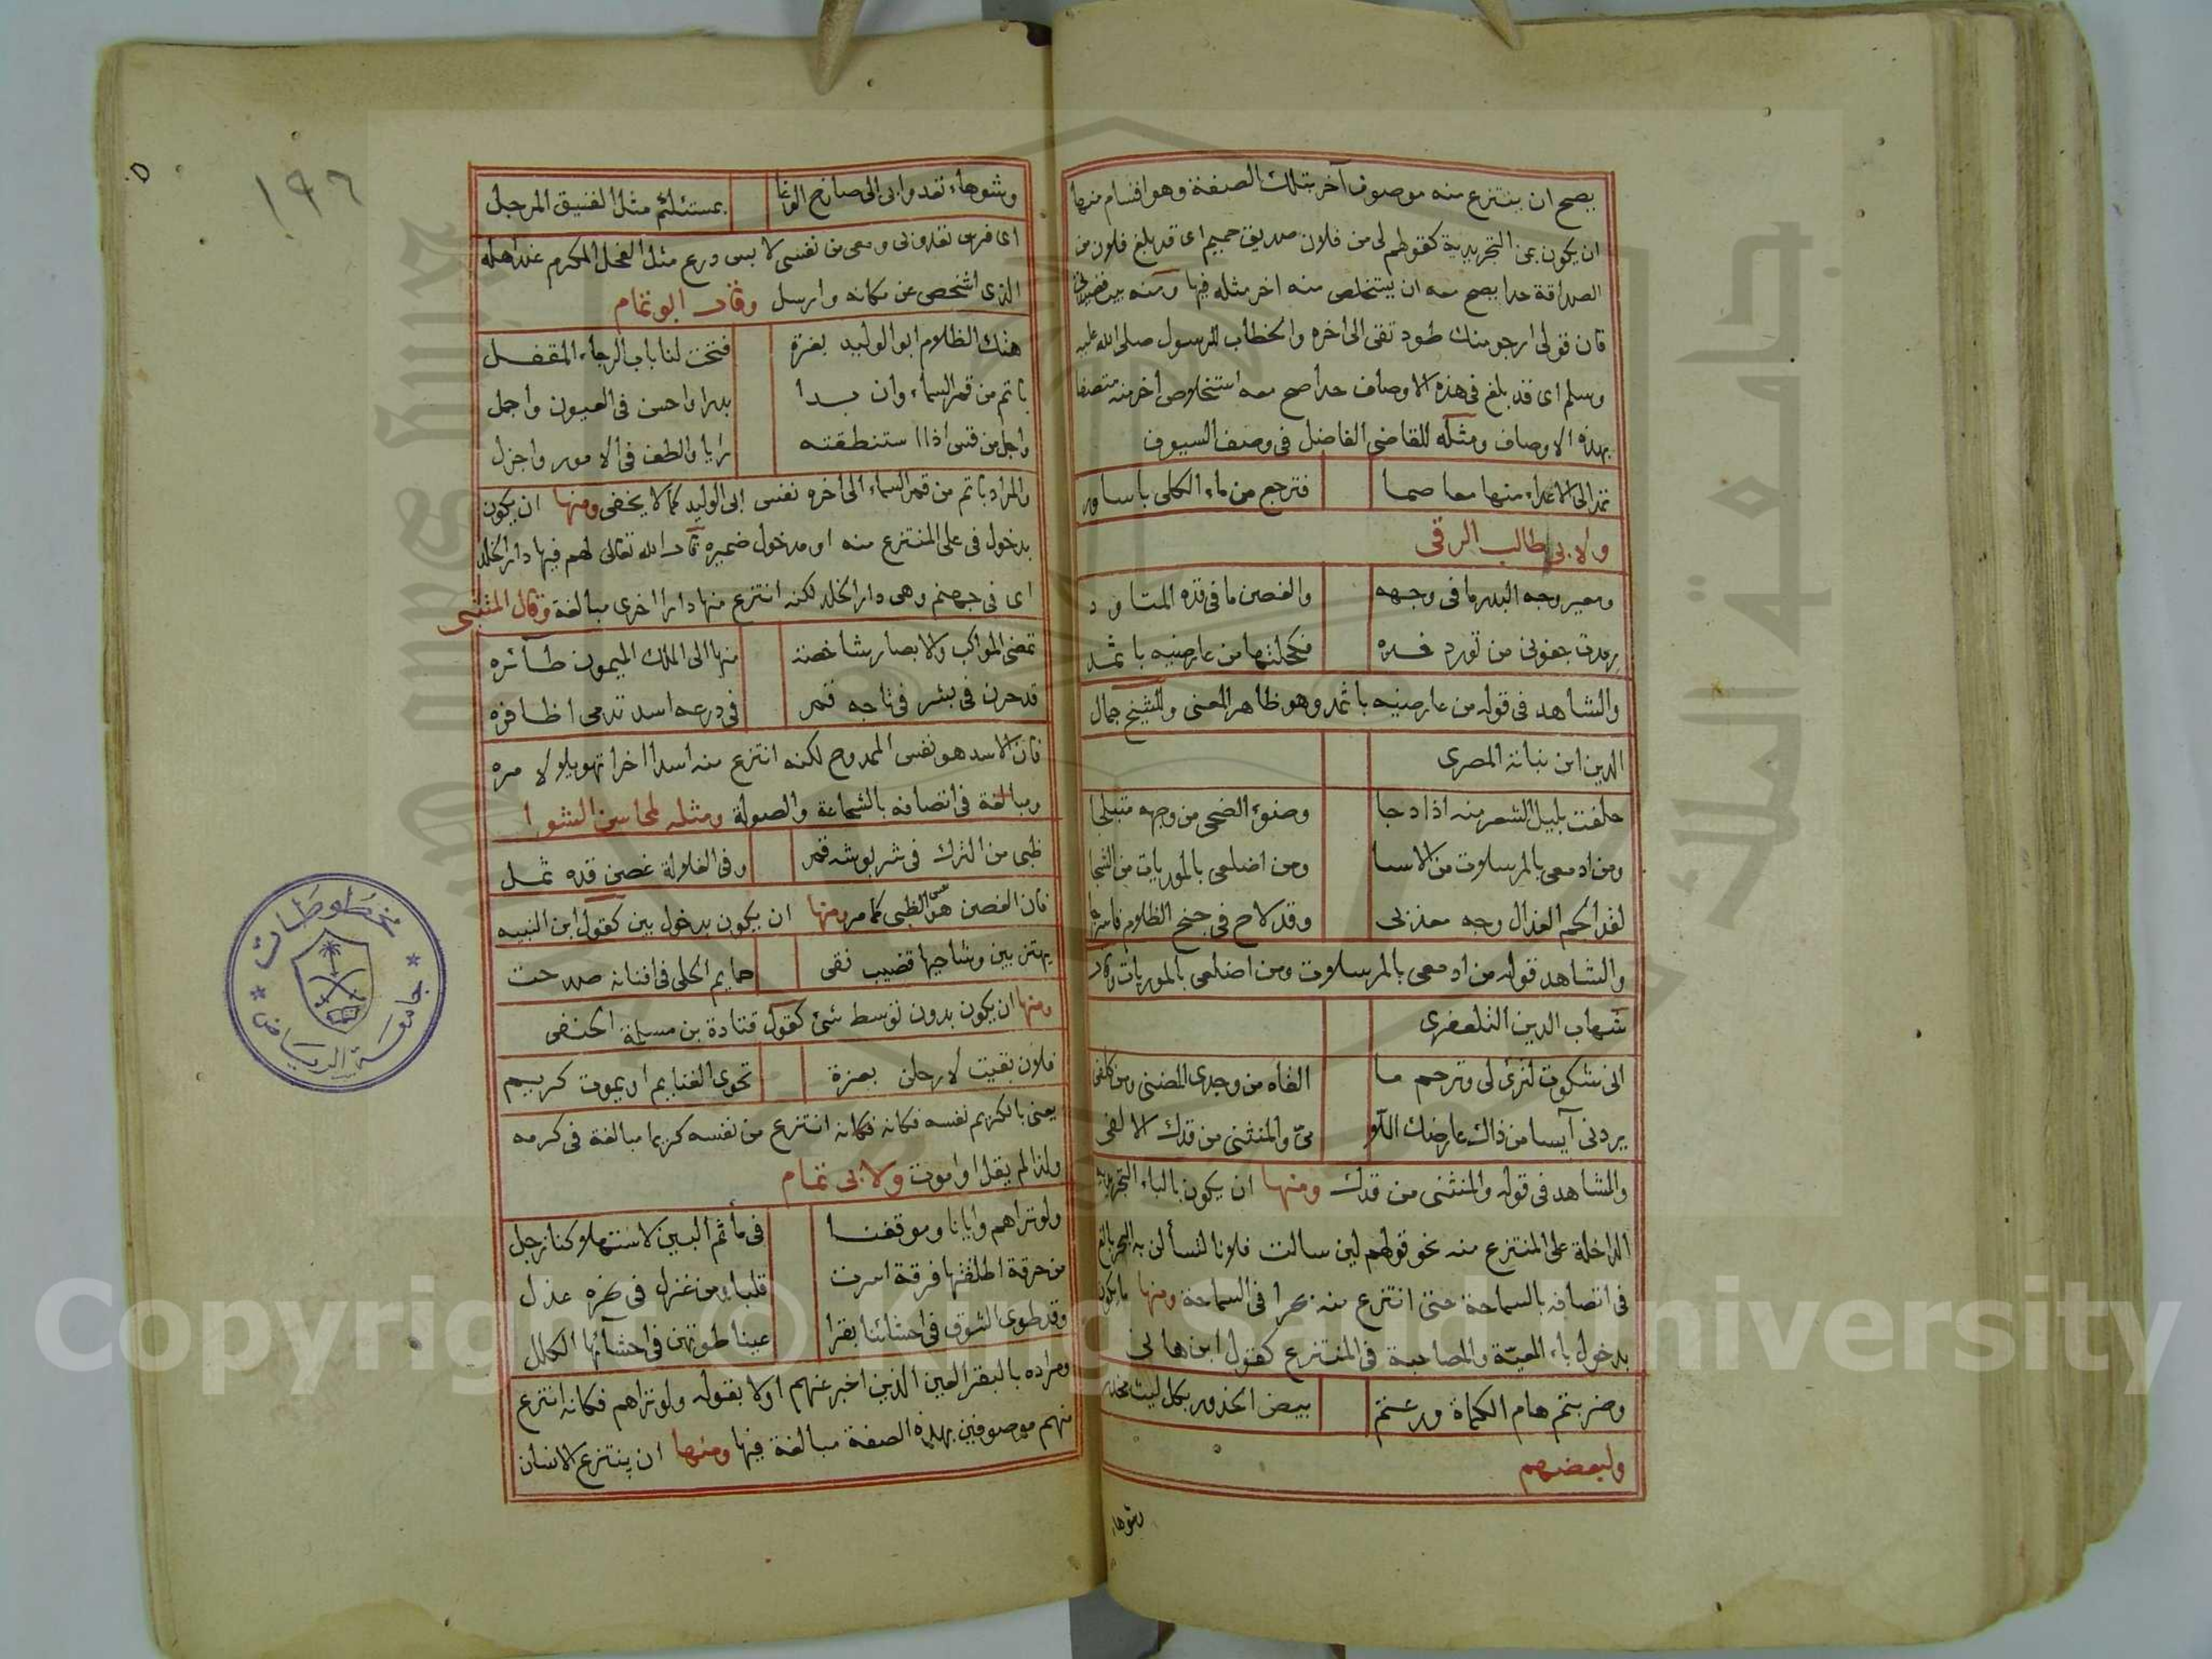 يصح ان ينتزع منه موصوف آخر بتلك الصفة وهو اقسام منها
ان يكون بمن التجريدية كقولهم لى من فلان صديق حميم اى قد بلغ فلان من
الصداقة حدا يصح معه ان يستخلص منه اخر مثله فيها ومنه بيت
فان قولى ارجو منك طود تقى الى اخره والخطاب للرسول صلى الله عليه
وسلم اى قد بلغ فى هذه الاوصاف حدا صح معه استخلاص اخر منه متصفا
بهذه الاوصاف ومثله للقاضى الفاضل فى وصف السيوف
تمد الى الاعداء منها معاصما فترجع من ماء الكلى باساور
ولابى طالب الرقى
ومعير وجه البدر ما فى وجهه والغصن ما فى قده المتاود
رمدت جفونى من تورد خده فكحلتها من عارضيه باثمد
والشاهد فى قوله من عارضيه باثمد وهو ظاهر المعنى وللشيخ جمال
الدين ابن نباتة المصرى
حلفت بليل الشعر منه اذا دجا وضوء الضحى من وجهه متبلجا
ومن ادمعى بالمرسلات من الاسا ومن اضلعى بالموريات من الشجا
لقد الجم العذال وجه معذبى وقد لاح فى جنح الظلام فاسرجا
والشاهد قوله من ادمعى بالمرسلات ومن اضلعى بالموريات وقال
شهاب الدين التلعفرى
انى شكوت لترثى لى وترحم ما القاه من وجدى المضنى ومن كلفى
يردنى آيسا من ذاك عارضك اللا مى والمنثنى من قدك الالفى
والشاهد فى قوله والمنثنى من قدك ومنها ان يكون بالباء التجريدية
الداخلة على المنتزع منه نحو قولهم لين سالت فلانا لتسألن به البحر بالغ
فى اتصافه بالسماحة حتى انتزع منه بحرا فى السماحة ومنها ما يكون
بدخول باء المعية والمصاحبة فى المنتزع كقول ابن هانى
وضربتم هام الكماة ورعتم بيض الخدور بكل ليث مخدر
ولبعضهم
وشوهاء
وشوهاء تعدو بى الى صارخ الوغا بمستلئم مثل الفنيق المرحل
اى فرس تعدو بى ومعى من نفسى لابس درع مثل الفحل المكرم عند اهله
الذى اشخص عن مكانه وارسل وقال ابو تمام
هتك الظلام ابو الوليد بغرة فتحت لنا باب الرجاء المقفل
باتم من قمر السماء وان بدا بدرا واحسن فى العيون واجمل
واجل من قس اذا استنطقته رايا والطف فى الامور واجزل
والمراد باتم من قمر السماء الى اخره نفس ابى الوليد كما لا يخفى ومنها ان يكون
بدخول فى على المنتزع منه او مدخول ضميره قال الله تعالى لهم فيها دار الخلد
اى فى جهنم وهى دار الخلد لكنه انتزع منها دارا اخرى مبالغة وقال المتنبى
تمضى المواكب والابصار شاخصة منها الى الملك الميمون طآئره
قد حرن فى بشر فى تاجه قمر فى درعه اسد تدمى اظافره
فان الاسد هو نفس الممدوح لكنه انتزع منه اسدا اخر تهويلا لامره
ومبالغة فى اتصافه بالشجاعة والصولة ومثله لمحاسن الشوا
ظبى من الترك فى شربوشه قمر وفى الغلالة غصن قده ثمل
فان الغصن هو نفس الظبى كما مر ومنها ان يكون بدخول بين كقول ابن النبيه
يهتز بين وشاحيها قضيب نقى حمايم الحلى فى افنانه صدحت
ومنها ان يكون بدون توسط شئ كقول قتادة بن مسلمة الحنفى
فلان بقيت لارحلن بغزة تحوى الغنايم او يموت كريم
يعنى بالكريم نفسه فكانه فكانه انتزع من نفسه كريما مبالغة فى كرمه
ولذا لم يقل او اموت ولابى تمام
ولو تراهم وايانا وموقفنا فى مأتم البين لاستهلالنا زجل
من حرقة اطلقتها فرقة اسرت قلبا ومن غزل فى نحره عذل
وقد طوى الشوق فى احشائنا بقرا عينا طوتهن فى احشآئها الكلل
ومراده بالبقر العين الذين اخبر عنهم اولا بقوله ولو تراهم فكانه انتزع
منهم موصوفين بهذه الصفة مبالغة فيها ومنها ان ينتزع الانسان
١٩٦
مخطوطات
جامعة الرياض
جامعة الملك
Copyright © King Saud University